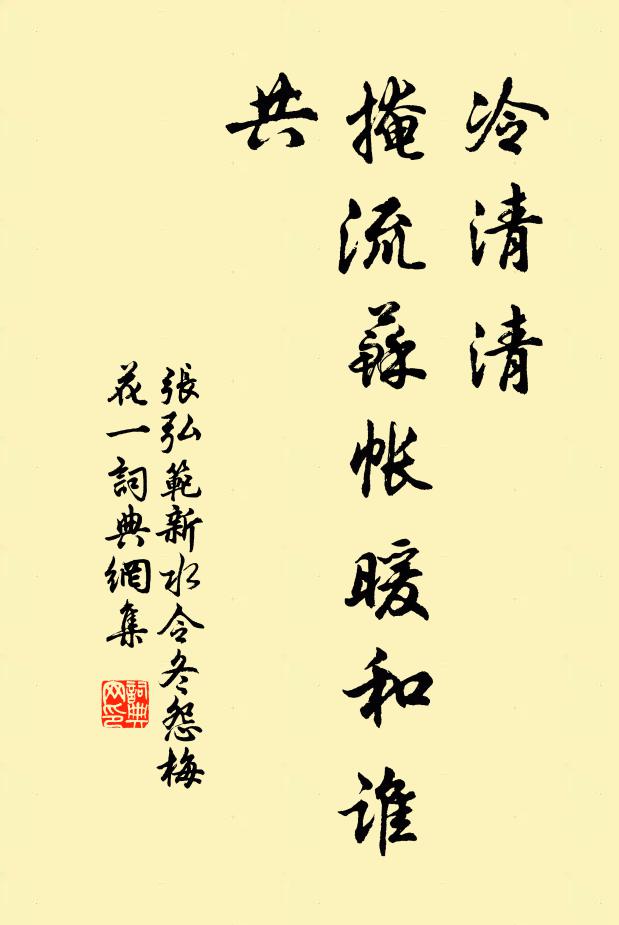 冷清清
掩流蘇帳暖和誰
共
張弘範新水令冬怨梅
花一詞典網集
詞典
网印